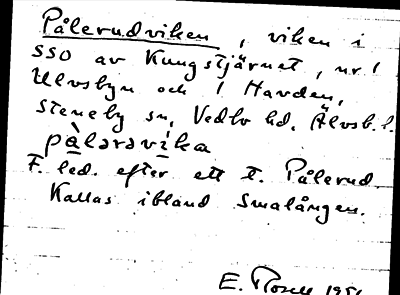 Pålerudviken, viken i
SSO av Kungstjärnet, nr 1
Ulvsbyn och 1 Havden,
Steneby sn, Vedbo hd, Älvsb. l.
pàlərəvika
F. led. efter ett t. Pålerud.
Kallas ibland Smalången.
E. Rosell 1951